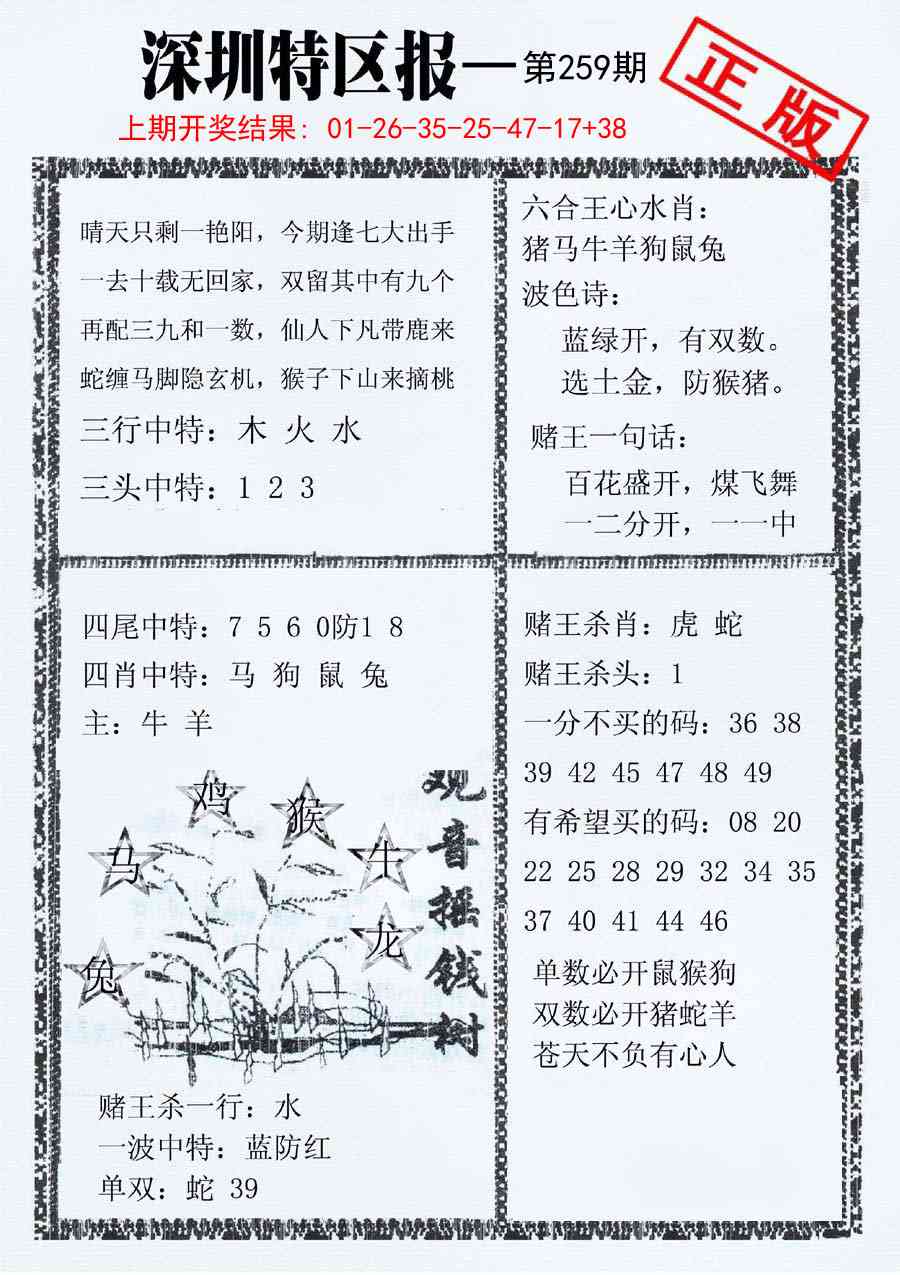 深圳特区报—第259期
正版
上期开奖结果: 01-26-35-25-47-17+38
晴天只剩一艳阳，今期逢七大出手
一去十载无回家，双留其中有九个
再配三九和一数，仙人下凡带鹿来
蛇缠马脚隐玄机，猴子下山来摘桃
三行中特：木 火 水
三头中特：1 2 3
六合王心水肖：
猪马牛羊狗鼠兔
波色诗：
蓝绿开，有双数。
选土金，防猴猪。
赌王一句话：
百花盛开，煤飞舞
一二分开，一一中
四尾中特：7 5 6 0防1 8
四肖中特：马 狗 鼠 兔
主：牛 羊
鸡
猴
马
牛
龙
兔
观音摇钱树
赌王杀一行：水
一波中特：蓝防红
单双：蛇 39
赌王杀肖：虎 蛇
赌王杀头：1
一分不买的码：36 38
39 42 45 47 48 49
有希望买的码：08 20
22 25 28 29 32 34 35
37 40 41 44 46
单数必开鼠猴狗
双数必开猪蛇羊
苍天不负有心人